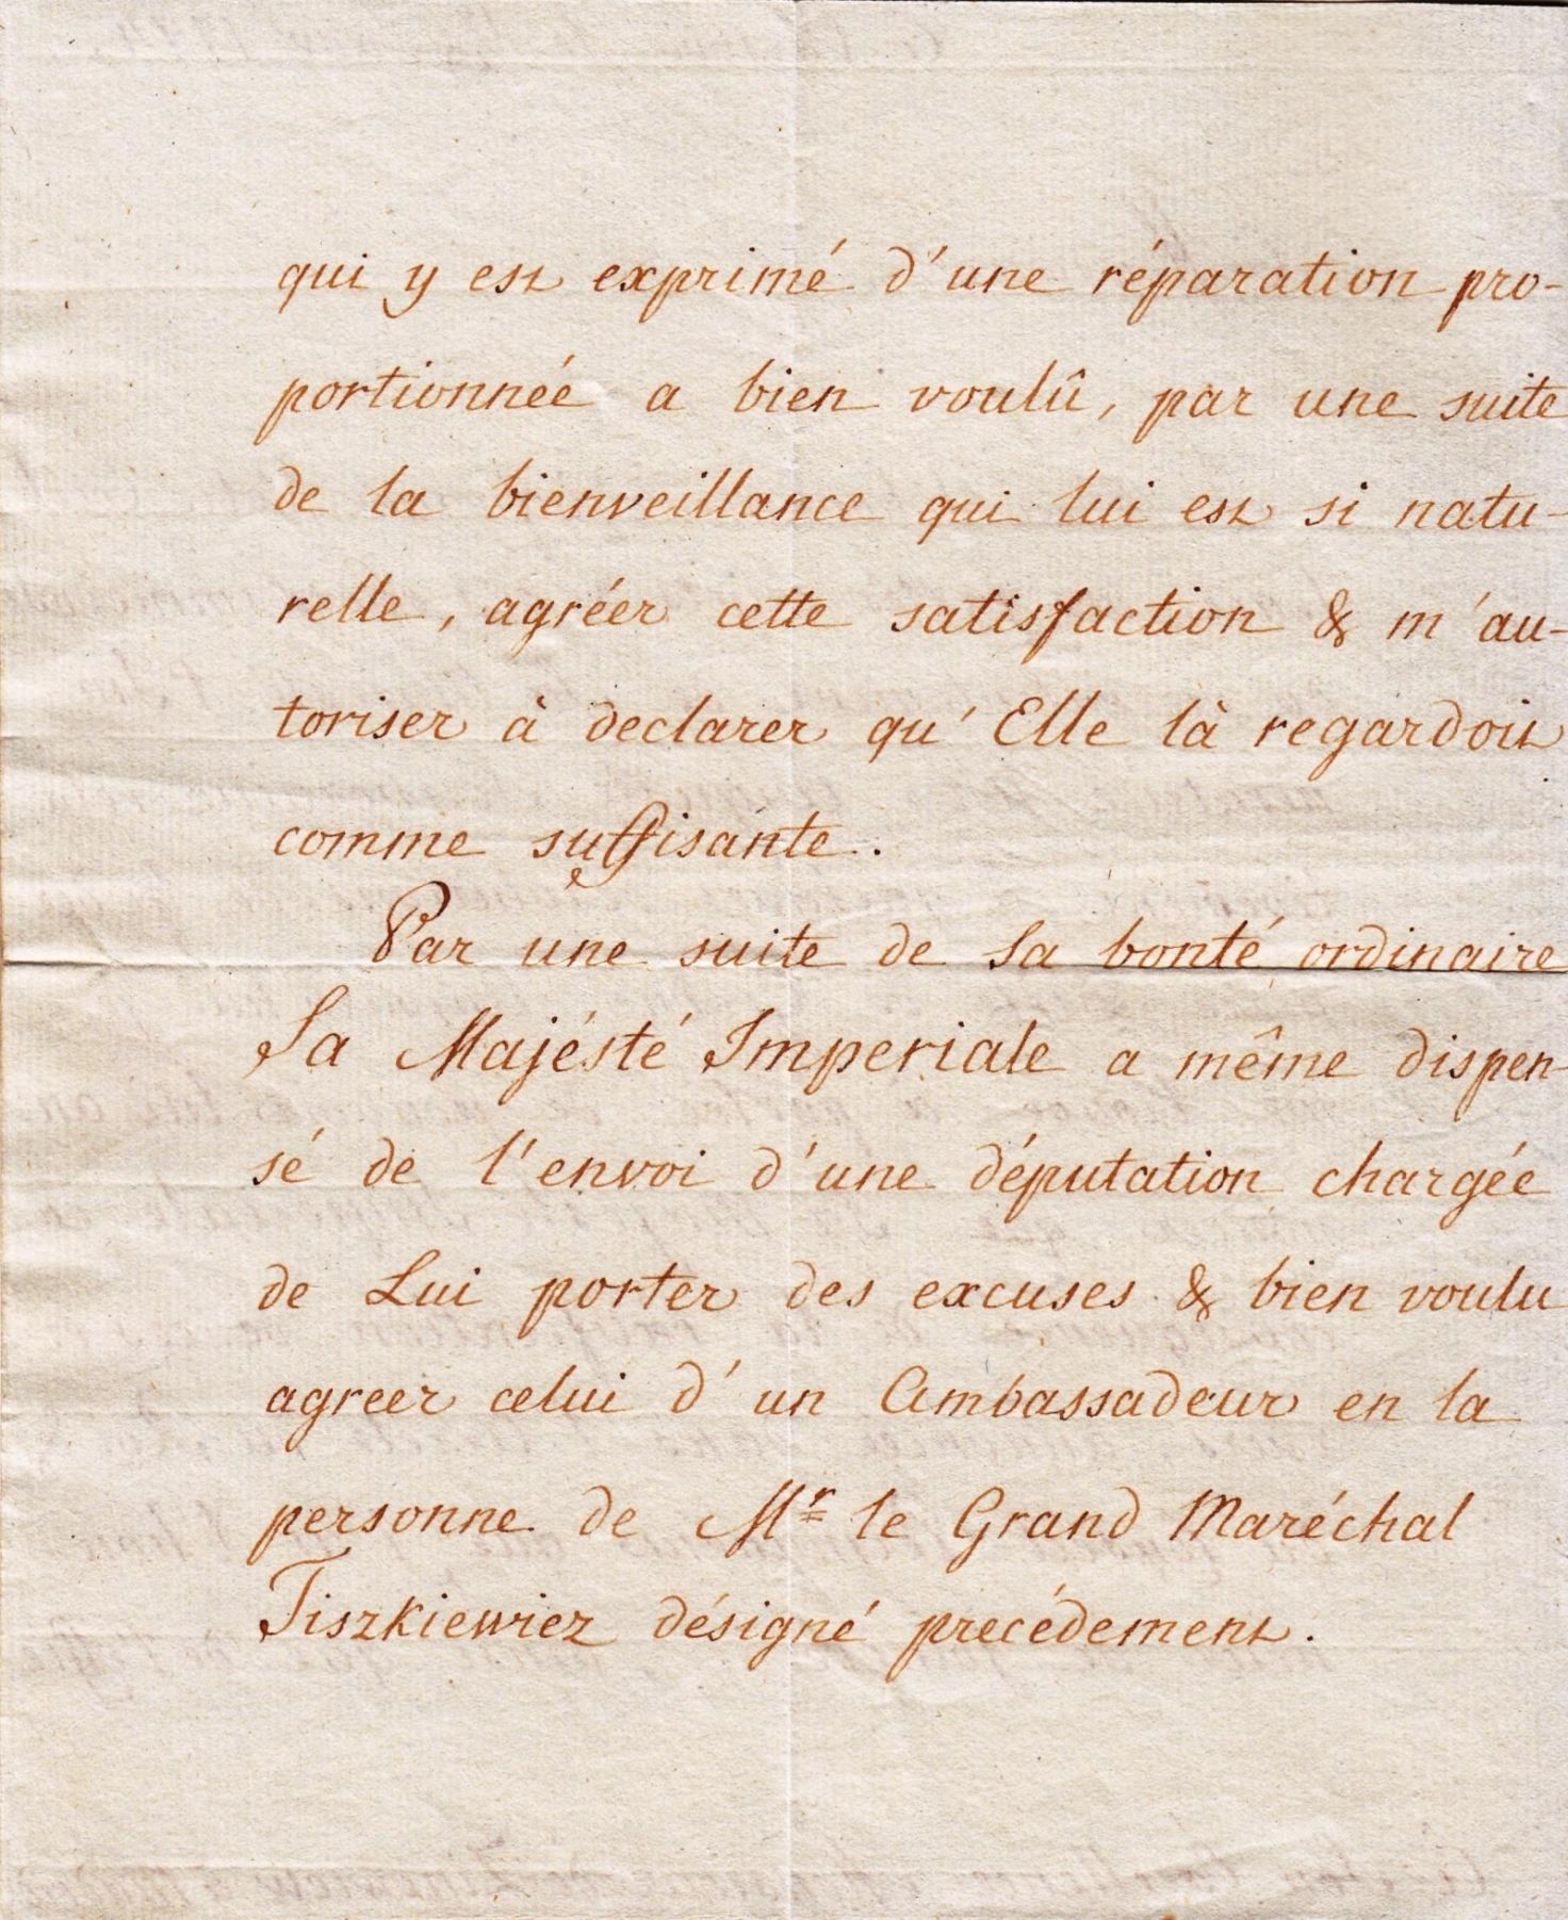 qui y est exprimé d'une réparation pro-
portionnée a bien voulû, par une suite
de la bienveillance qui lui est si natu-
relle, agréer cette satisfaction & m'au-
toriser à declarer qu'Elle là regardoit
comme suffisante.
Par une suite de Sa bonté ordinaire
Sa Majésté Imperiale a même dispen-
sé de l'envoi d'une députation chargée
de Lui porter des excuses & bien voulu
agreer celui d'un Ambassadeur en la
personne de Mr le Grand Maréchal
Tiszkiewiez désigné precédement.